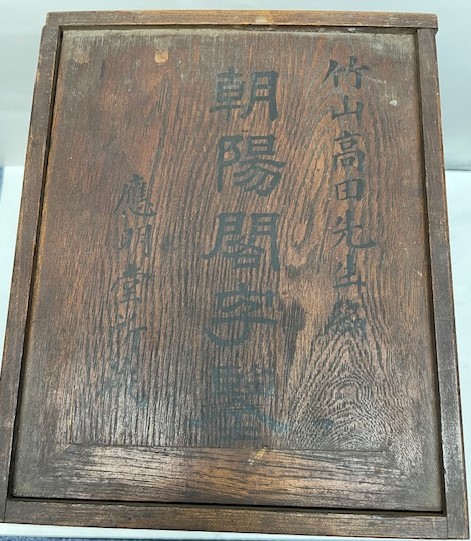 竹山高田先生編
朝陽閣字鑒
應明堂所